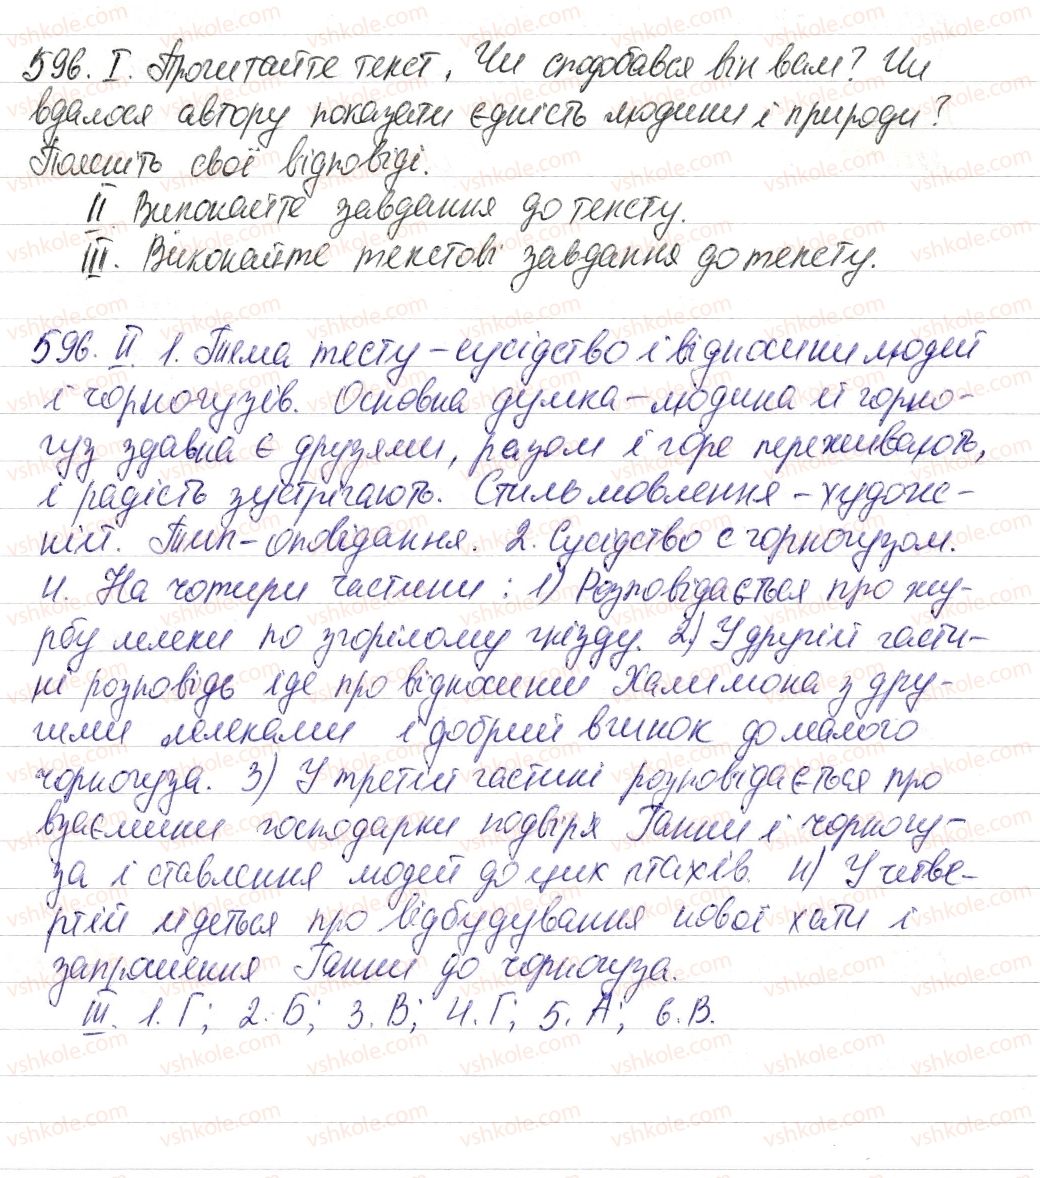 596. I. Прочитайте текст. Чи сподобався він вам? Чи
вдалося автору показати єдність людини і природи?
Поясніть свої відповіді.
II Виконайте завдання до тексту.
III. Виконайте текстові завдання до тексту.
596. II 1. Тема тесту – сусідство і відносини людей
і чорногузів. Основна думка – людина й чорно-
гуз здавна є друзями, разом і горе переживають,
і радість зустрічають. Стиль мовлення – художе-
ній. Тип – оповідання. 2. Сусідство с чорногузом.
4. На чотири частини: 1) Розповідається про жу-
рбу лелеки по згорілому гнізду. 2) У другій части-
ні розповідь іде про відносини Халимона з дру-
гими лелеками і добрий вчинок до малого
чорногуза. 3) У третій частині розповідається про
взаємини господарки подвір'я Ганни і чорногу-
за і ставлення людей до цих птахів. 4) У четве-
ртій йдеться про відбудування нової хати і
запрошення Ганни до чорногуза.
III. 1. Г; 2. Б; 3. В; 4. Г; 5. А; 6. В.